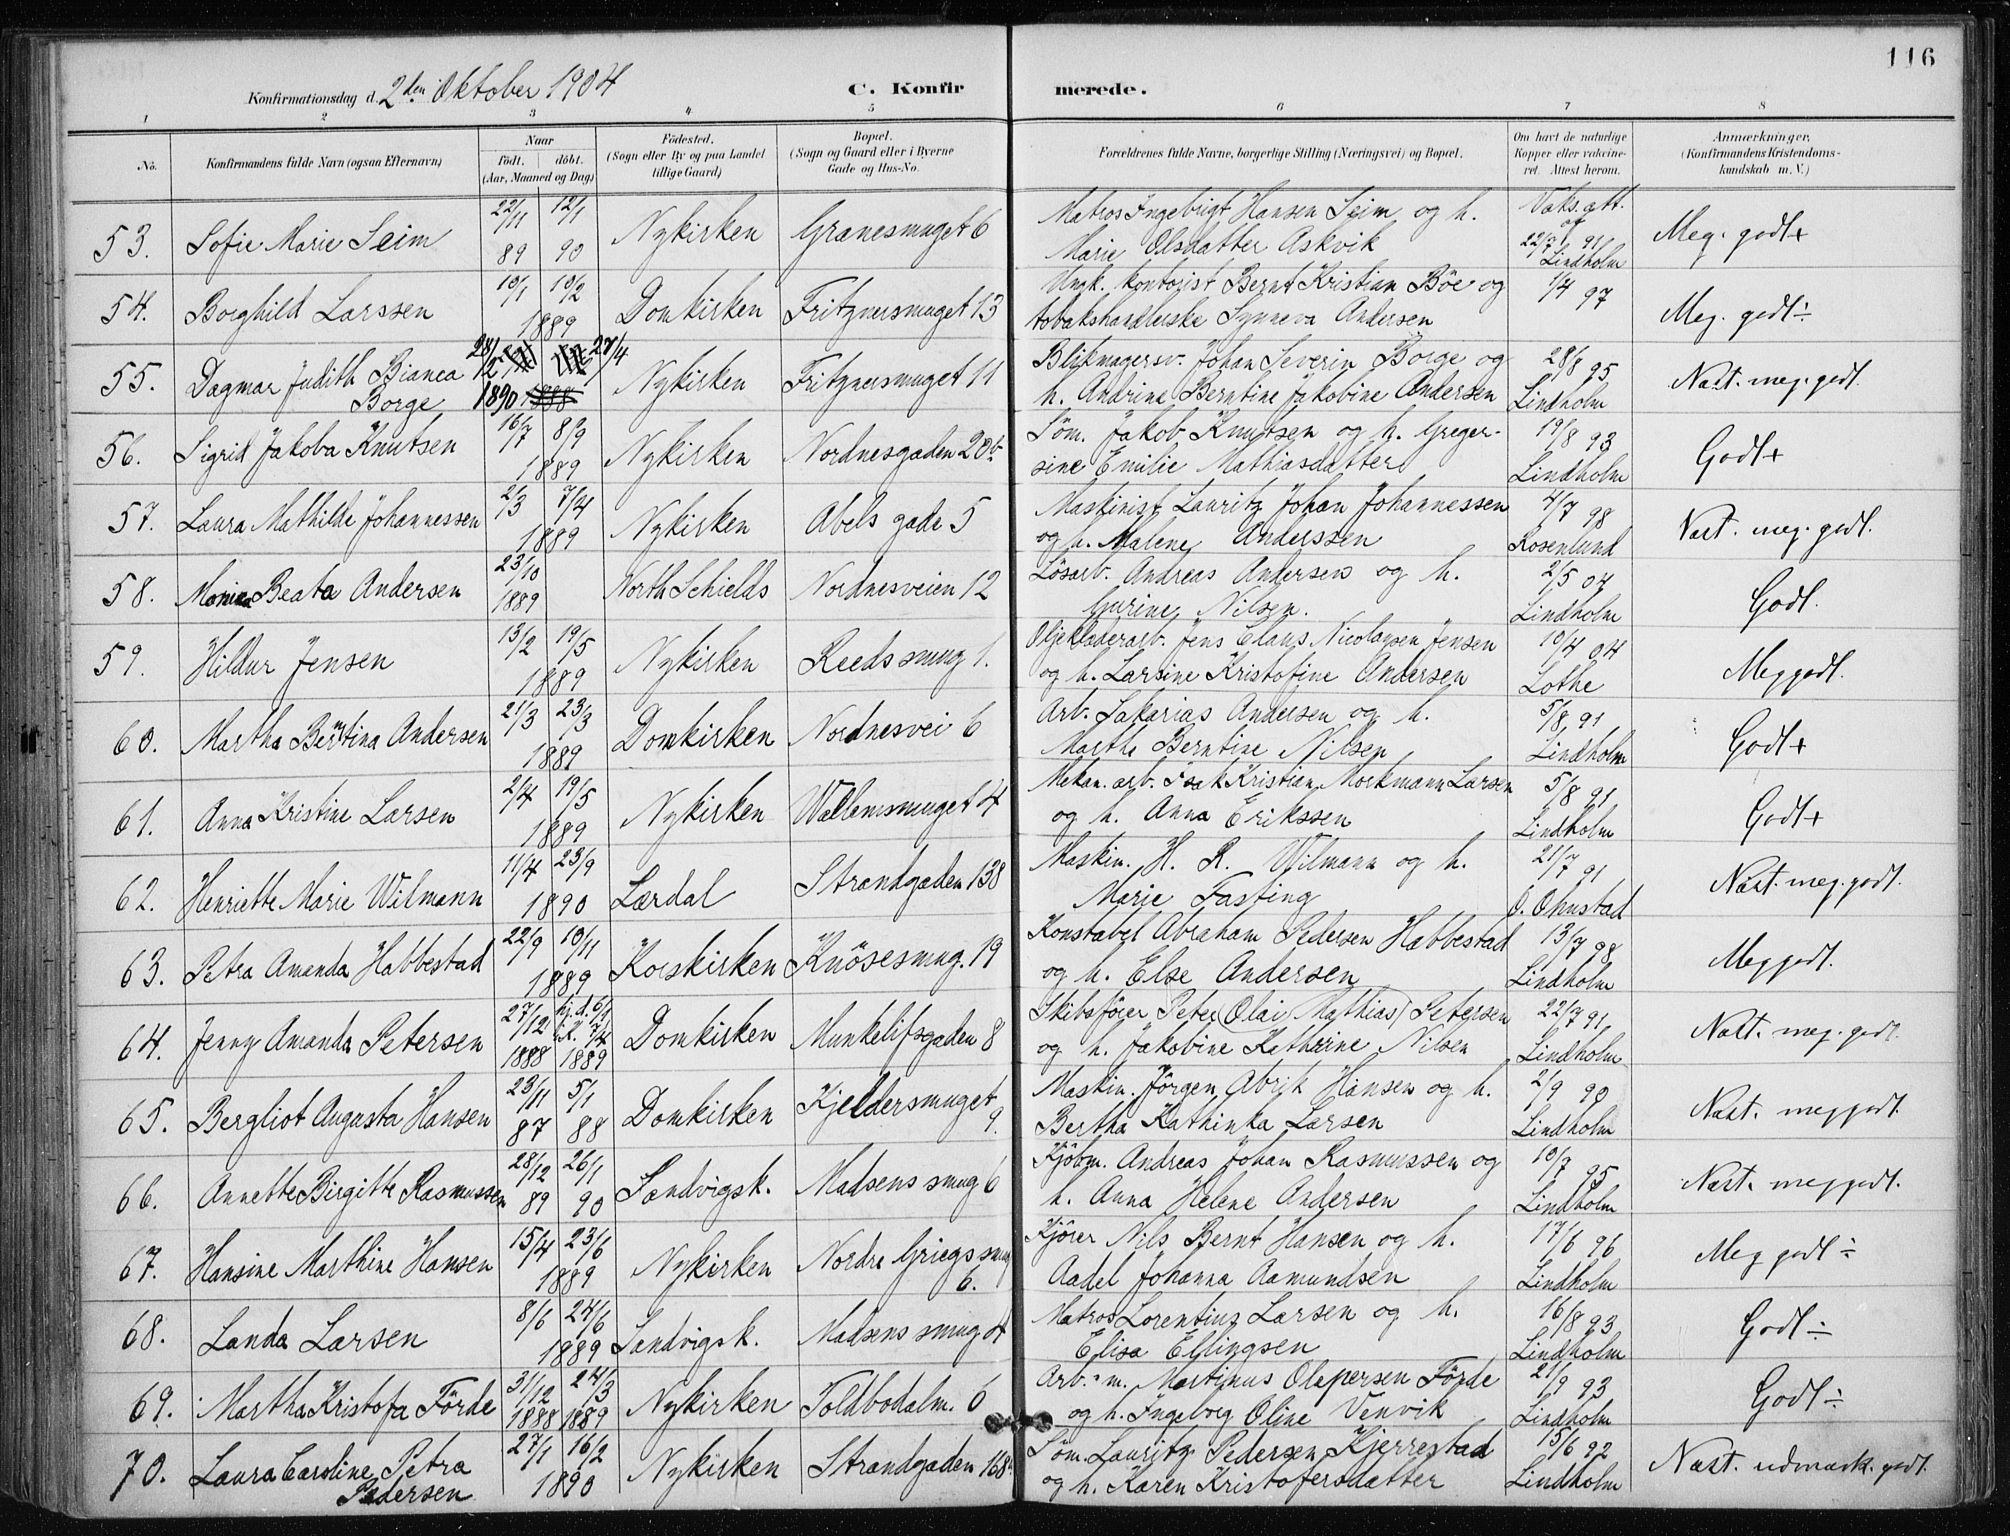 116
Konfirmationsdag d. 2den Oktober 1904 C. Konfirmerede.
1 2 3 4 5 6 7 8
No. Konfirmandens fulde Navn (ogsaa Efternavn) Naar födt. döbt. (Aar, Maaned og Dag) Födested. (Sogn eller By og paa Landet tillige Gaard) Bopæl. (Sogn og Gaard eller i Byerne Gade og Hus-No. Forældrenes fulde Navne, borgerlige Stilling (Næringsvei) og Bopæl. Om havt de naturlige Kopper eller vakcineret. Attest herom. Anmærkninger. (Konfirmandens Kristendomskundskab m. V.)
53. Sofie Marie Seim 22/11 89 12/1 90 Nykirken Granesmuget 6 Matros Ingebrigt Hansen Seim og h. Marie Olsdatter Askvik Vaks. att. af 22/7 91 Lindholm Meg. godt +
54. Borghild Larssen 10/1 10/2 1889 Domkirken Fritznersmuget 13 Ungk. kontorist Bernt Kristian Böe og tobakshandlerske Synneva Andersen 1/4 97 Meg. godt ÷
55. Dagmar Judith Bianca Borge 28/12 1890 27/4 1888 Nykirken Fritznersmuget 11 Blikmagersv. Johan Severin Borge og h. Andrine Berntine Jakobine Andersen 28/8 95 Lindholm Næst. meg. godt.
56. Sigrid Jakoba Knutsen 16/7 8/9 1889 Nykirken Nordnesgaden 20b Söm. Jakob Knutsen og h. Gregersine Emilie Mathiasdatter 19/8 93 Lindholm Godt +
57. Laura Mathilde Johannessen 2/3 7/4 1889 Nykirken Abels gade 5 Maskinist Lauritz Johan Johannessen og h. Malene Anderssen 4/7 98 Rosenlund Næst. meg. godt.
58. Beata Andersen 23/10 1889 North Schields Nordnesveien 12 Lösarb. Andreas Andersen og h. Gurine Nilsen. 2/5 04 Lindholm Godt.
59. Hildur Jensen 13/2 19/5 1889 Nykirken Reeds smug 1. Oljeklæderarb. Jens Claus Nicolaysen Jensen og h. Larsine Kristofine Andersen 10/4 04 Lothe Meg godt.
60. Martha Berntina Andersen 21/3 23/3 1889 Domkirken Nordnesvei 6 Arb. Sakarias Andersen og h. Marthe Berntine Nilsen 5/8 91 Lindholm Godt +
61. Anna Kristine Larsen 2/4 19/5 1889 Nykirken Wallemsmuget 4 Mekan. arb. Isak Kristian Morkmann Larsen og h. Anna Erikssen 5/8 91 Lindholm Godt +
62. Henriette Marie Wilmann 11/4 23/9 1890 Lærdal Strandgaden 138 Maskin. H. R. Wilmann og h. Marie Fasting 21/7 91 O. Ohnstad Næst. meg. godt.
63. Petra Amanda Habbestad 22/9 10/11 1889 Korskirken Knösesmug. 19 Konstabel Abraham Pedersen Habbestad og h. Else Andersen 13/7 98 Lindholm Meg godt.
64. Jenny Amanda Petersen 27/12 1888 hj. d. 6/1 i K. 7/4 1889 Domkirken Munkelifsgaden 8 Skibsförer Peter (Olai Mathias) Petersen og h. Jakobine Kathrine Nilsen 22/7 91 Lindholm Næst. meg. godt.
65. Bergliot Augusta Hansen 23/11 87 5/1 88 Domkirken Kjeldersmuget 9. Maskin. Jörgen Abrik Hansen og h. Bertha Kathinka Larsen 2/9 90 Lindholm Næst. meg godt.
66. Annette Birgitte Rasmussen 28/12 89 26/1 90 Sandvigsk. Madsens smug 6 Kjöbm. Andreas Johan Rasmussen og h. Anna Helene Andersen 10/7 95 Lindholm Næst. meg godt.
67. Hansine Marthine Hansen 15/4 23/6 1889 Nykirken Nordre Griegs smug 6. Kjörer Nils Bernt Hansen og h. Aadel Johanna Aamundsen 17/6 96 Lindholm Meg godt ÷
68. Landa Larsen 8/6 24/6 1889 Sandvigsk. Madsens smug Matros Lorentius Larsen og h. Elisa Ellingsen 16/8 93 Lindholm Godt ÷
69. Martha Kristofa Förde 31/12 1888 24/3 1889 Nykirken Toldbodalm. 6 Arb. m. Martinus Olapersen Förde og h. Ingeborg Oline Venvik 21/9 93 Lindholm Godt ÷
70. Laura Caroline Petra Pedersen 27/1 16/2 1890 Nykirken Strandgaden 168 Söm. Lauritz Pedersen Kjerrestad og h. Karen Kristofersdatter 15/6 92 Lindholm Næst. udmærk. godt.